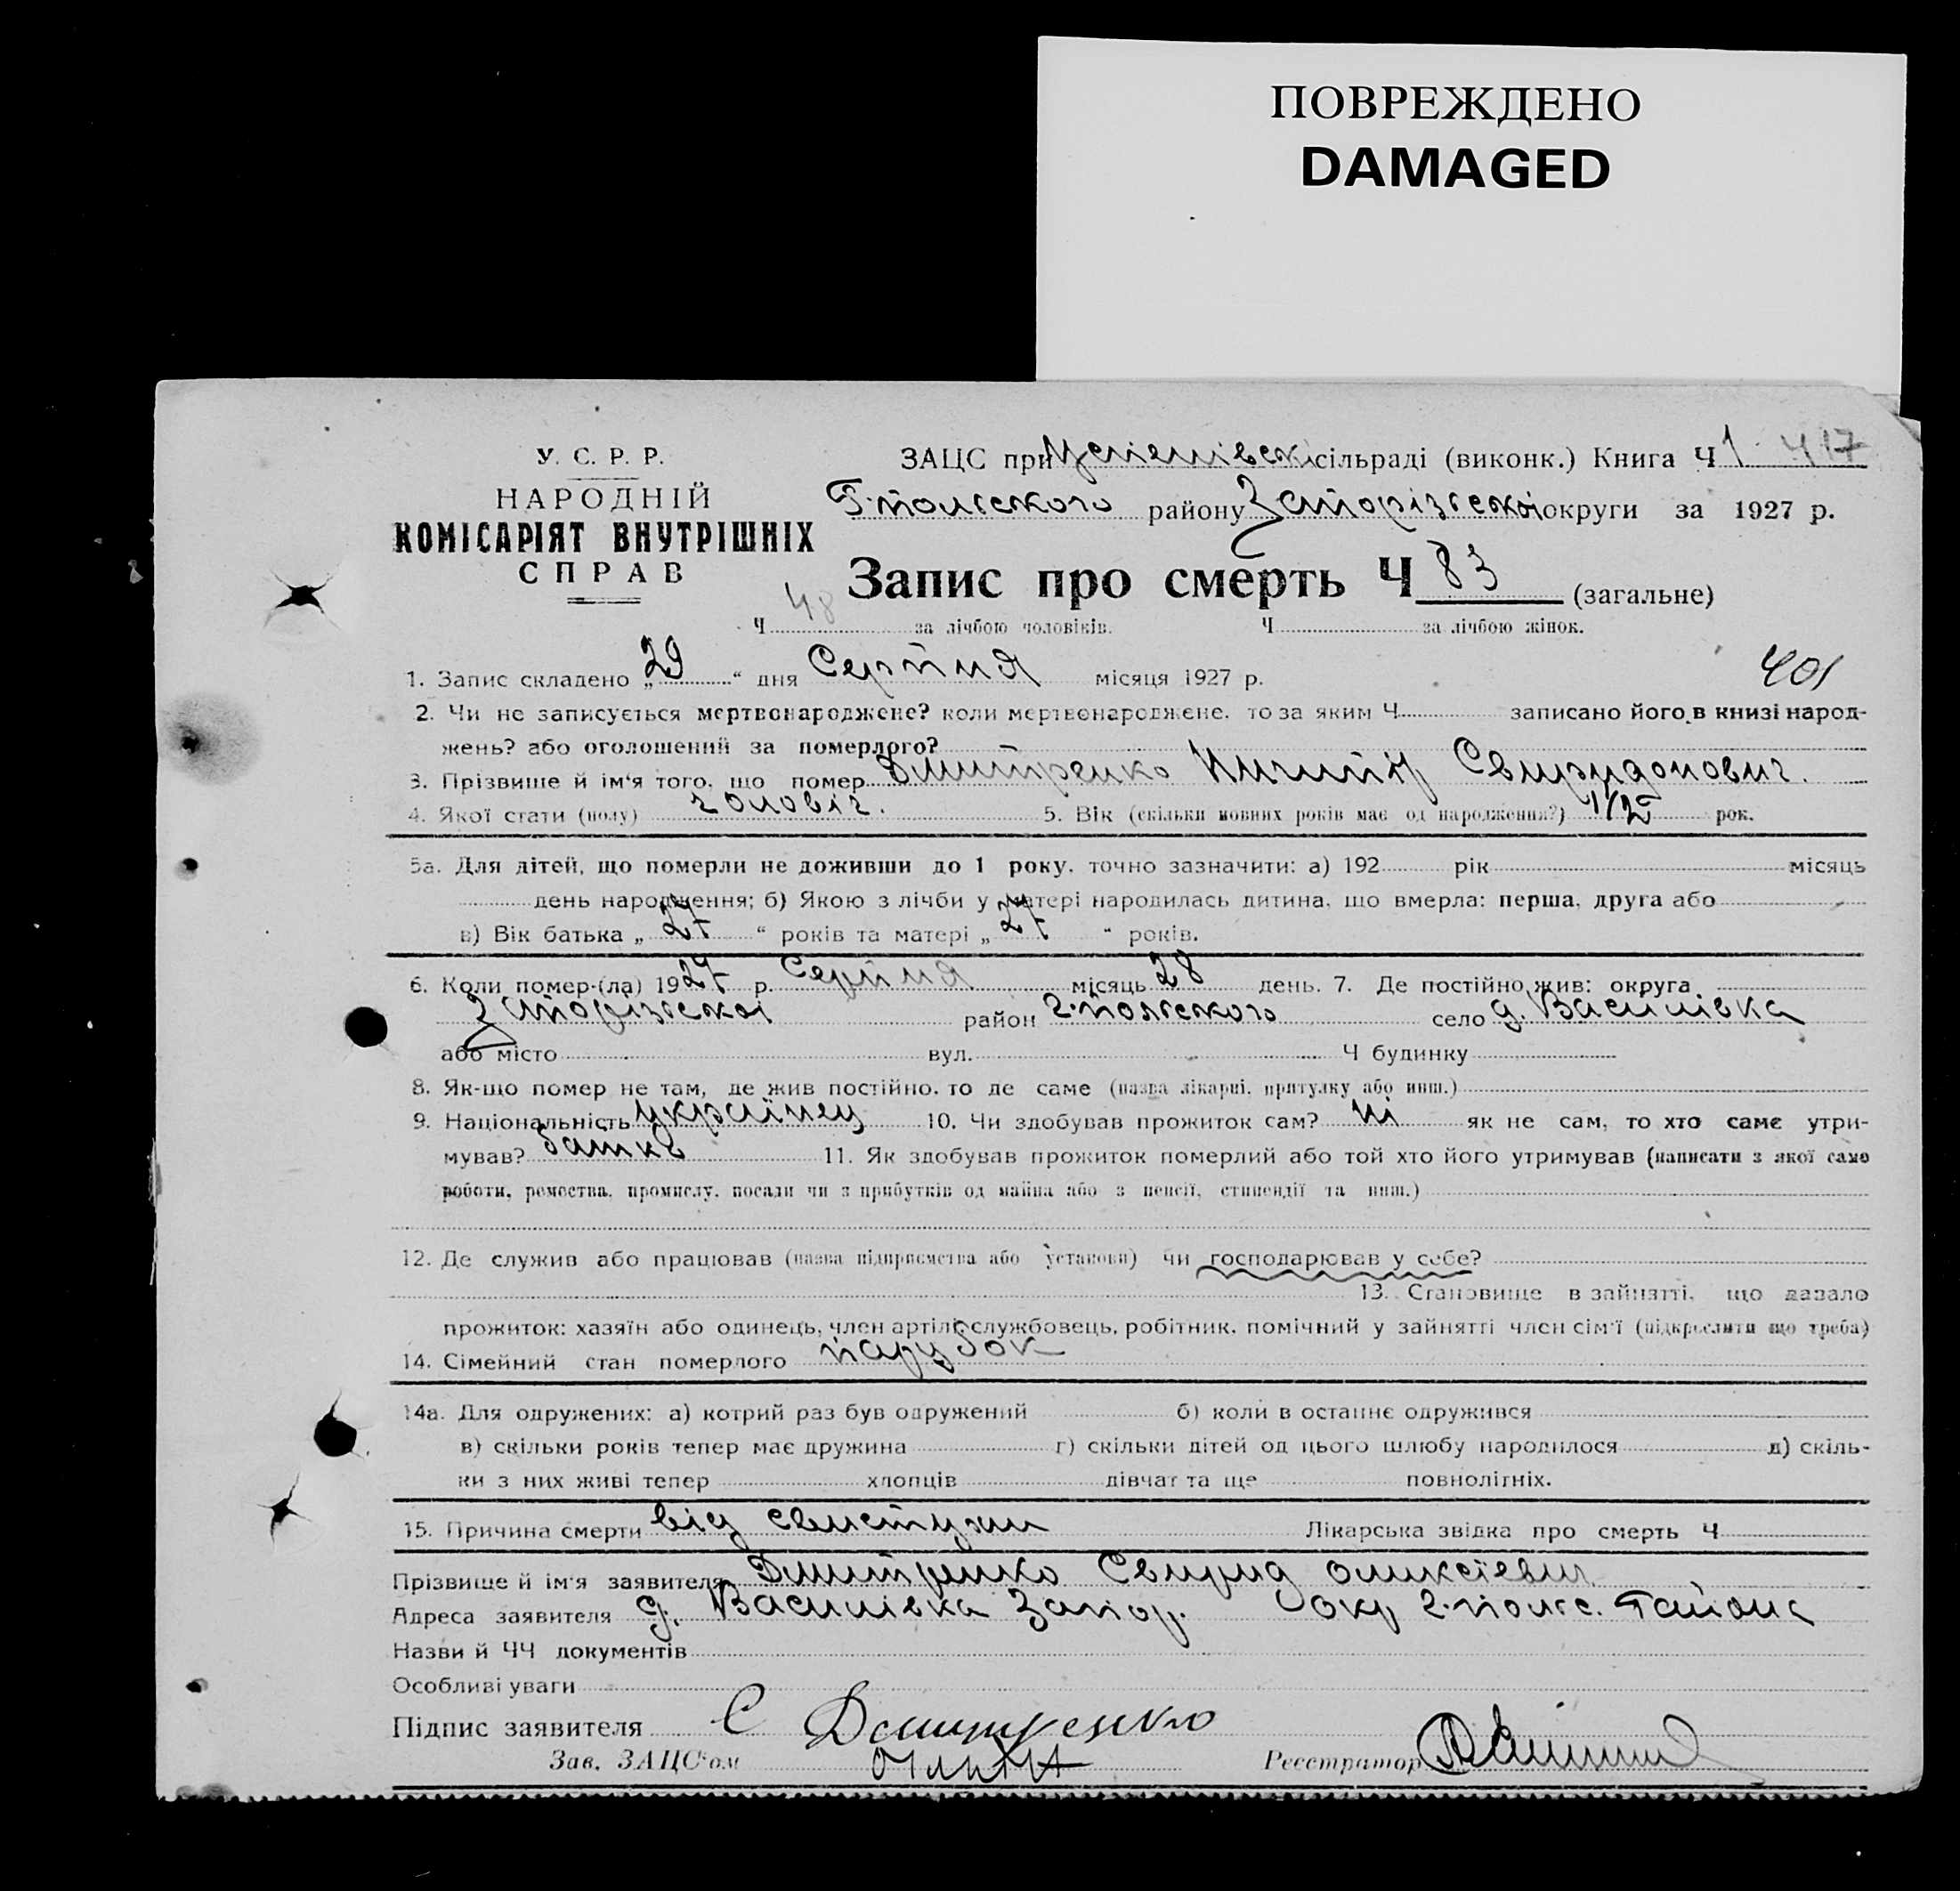 ПОВРЕЖДЕНО
DAMAGED
У. С. Р. Р.
НАРОДНІЙ
КОМІСАРІЯТ ВНУТРІШНІХ
СПРАВ
ЗАЦС при Успенівскі сільраді (виконк.) Книга Ч 1 417
Г-польского району Запорізської округи за 1927 р.
Запис про смерть Ч 83 (загальне)
Ч 48 за лічбою чоловіків. Ч за лічбою жінок.
401
1. Запис складено „ 29 “ дня Серпня місяця 1927 р.
2. Чи не записується мертвонароджене? коли мертвонароджене, то за яким Ч записано його в книзі народ-
жень? або оголошений за померлого?
3. Прізвище й ім'я того, що помер Дмитренко Ничипір Свиридонович.
4. Якої стати (полу) чоловіч. 5. Вік (скільки повних років має од народження?) 1/2 рок.
5а. Для дітей, що померли не доживши до 1 року, точно зазначити: а) 192 рік місяць
день народження; б) Якою з лічби у матері народилась дитина, що вмерла: перша, друга або
в) Вік батька „ 27 “ років та матері „ 27 “ років.
6. Коли помер-(ла) 1927 р. Серпня місяць 28 день. 7. Де постійно жив: округа
Запорізської район г-польского село д. Василівка
або місто вул. Ч будинку
8. Як-що помер не там, де жив постійно, то де саме (назва лікарні, притулку або инш.)
9. Національність українец 10. Чи здобував прожиток сам? ні як не сам, то хто саме утри-
мував? батько 11. Як здобував прожиток померлий або той хто його утримував (написати з якої само
роботи, ремества, промислу, посади чи з прибутків од майна або з пенсії, стипендії та инш.)
12. Де служив або працював (назва підприємства або установи) чи господарював у себе?
13. Становище в зайнятті, що давало
прожиток: хазяїн або одинець, член артілі, службовець, робітник, помічний у зайнятті член сім'ї (підкреслити що треба)
14. Сімейний стан померлого парубок
14а. Для одружених: а) котрий раз був одружений б) коли в останнє одружився
в) скільки років тепер має дружина г) скільки дітей од цього шлюбу народилося д) скіль-
ки з них живі тепер хлопців дівчат та ще повнолітніх.
15. Причина смерти від свистухи Лікарська звідка про смерть Ч
Прізвище й ім'я заявителя Дмитренко Свирид Оликсіевич
Адреса заявителя д. Василівка Запор. окр г-польс. района
Назви й ЧЧ документів
Особливі уваги
Підпис заявителя С Дмитренко
Зав. ЗАЦС'ом Реєстратор